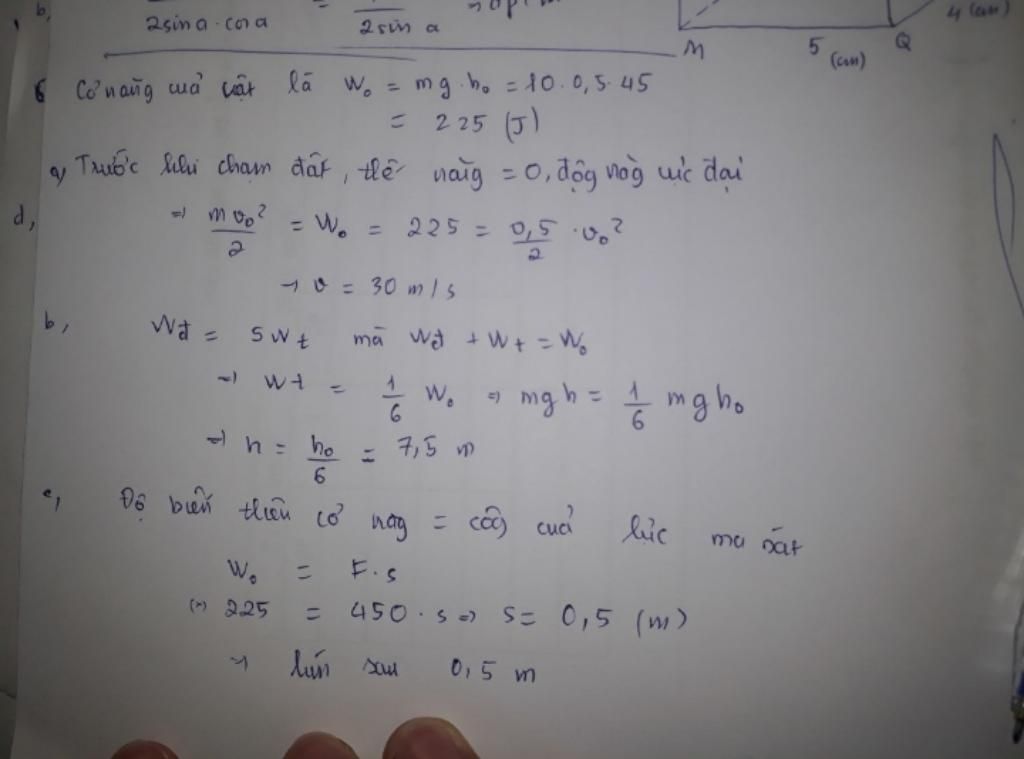 b,
2sina.cosa = 2sin a
M 5 (cm) Q 4 (cm)
6 Cơ năng cuả vật là W₀ = mg.h₀ = 10.0,5.45
= 225 (J)
a, Trước khi chạm đất, thế năng = 0, độg năg cực đại
d,
⇒ mv₀²/2 = W₀ = 225 = 0,5/2 . v₀²
→ v = 30 m/s
b, Wđ = 5Wt mà Wđ + Wt = W₀
⇒ Wt = 1/6 W₀ ⇒ mgh = 1/6 mgh₀
⇒ h = h₀/6 = 7,5 m
c, Độ biến thiên cơ năg = côg cuả lực ma sát
W₀ = F.s
(⇒) 225 = 450.s ⇒ s = 0,5 (m)
→ lún sau 0,5 m